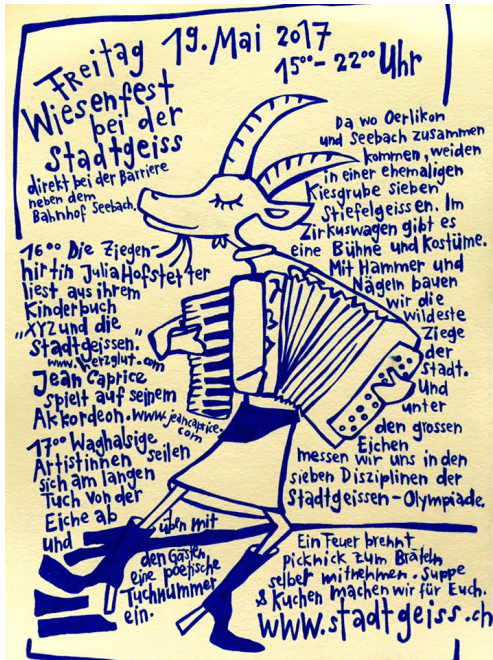 Freitag 19. Mai 2017
15⁰⁰ - 22⁰⁰ Uhr
Wiesenfest
bei der
Stadtgeiss
direkt bei der Barriere
neben dem
Bahnhof Seebach.
Da wo Oerlikon
und Seebach zusammen
kommen, weiden
in einer ehemaligen
Kiesgrube sieben
Stiefelgeissen. Im
Zirkuswagen gibt es
eine Bühne und Kostüme.
Mit Hammer und
Nägeln bauen
wir die
wildeste
Ziege
der
Stadt.
Und
unter
den grossen
Eichen
messen wir uns in den
sieben Disziplinen der
Stadtgeissen-Olympiade.
16⁰⁰ Die Ziegen-
hirtin Julia Hofstetter
liest aus ihrem
Kinderbuch
"XYZ und die
Stadtgeissen."
www.herzglut.com
Jean Caprice
spielt auf seinem
Akkordeon. www.jeancaprice.
com
17⁰⁰ Waghalsige
Artistinnen seilen
sich am langen
Tuch von der
Eiche ab
und üben mit
den Gästen
eine poetische
Tuchnummer
ein.
Ein Feuer brennt
picknick zum Bräteln
selber mitnehmen. Suppe
& Kuchen machen wir für Euch.
www.stadtgeiss.ch